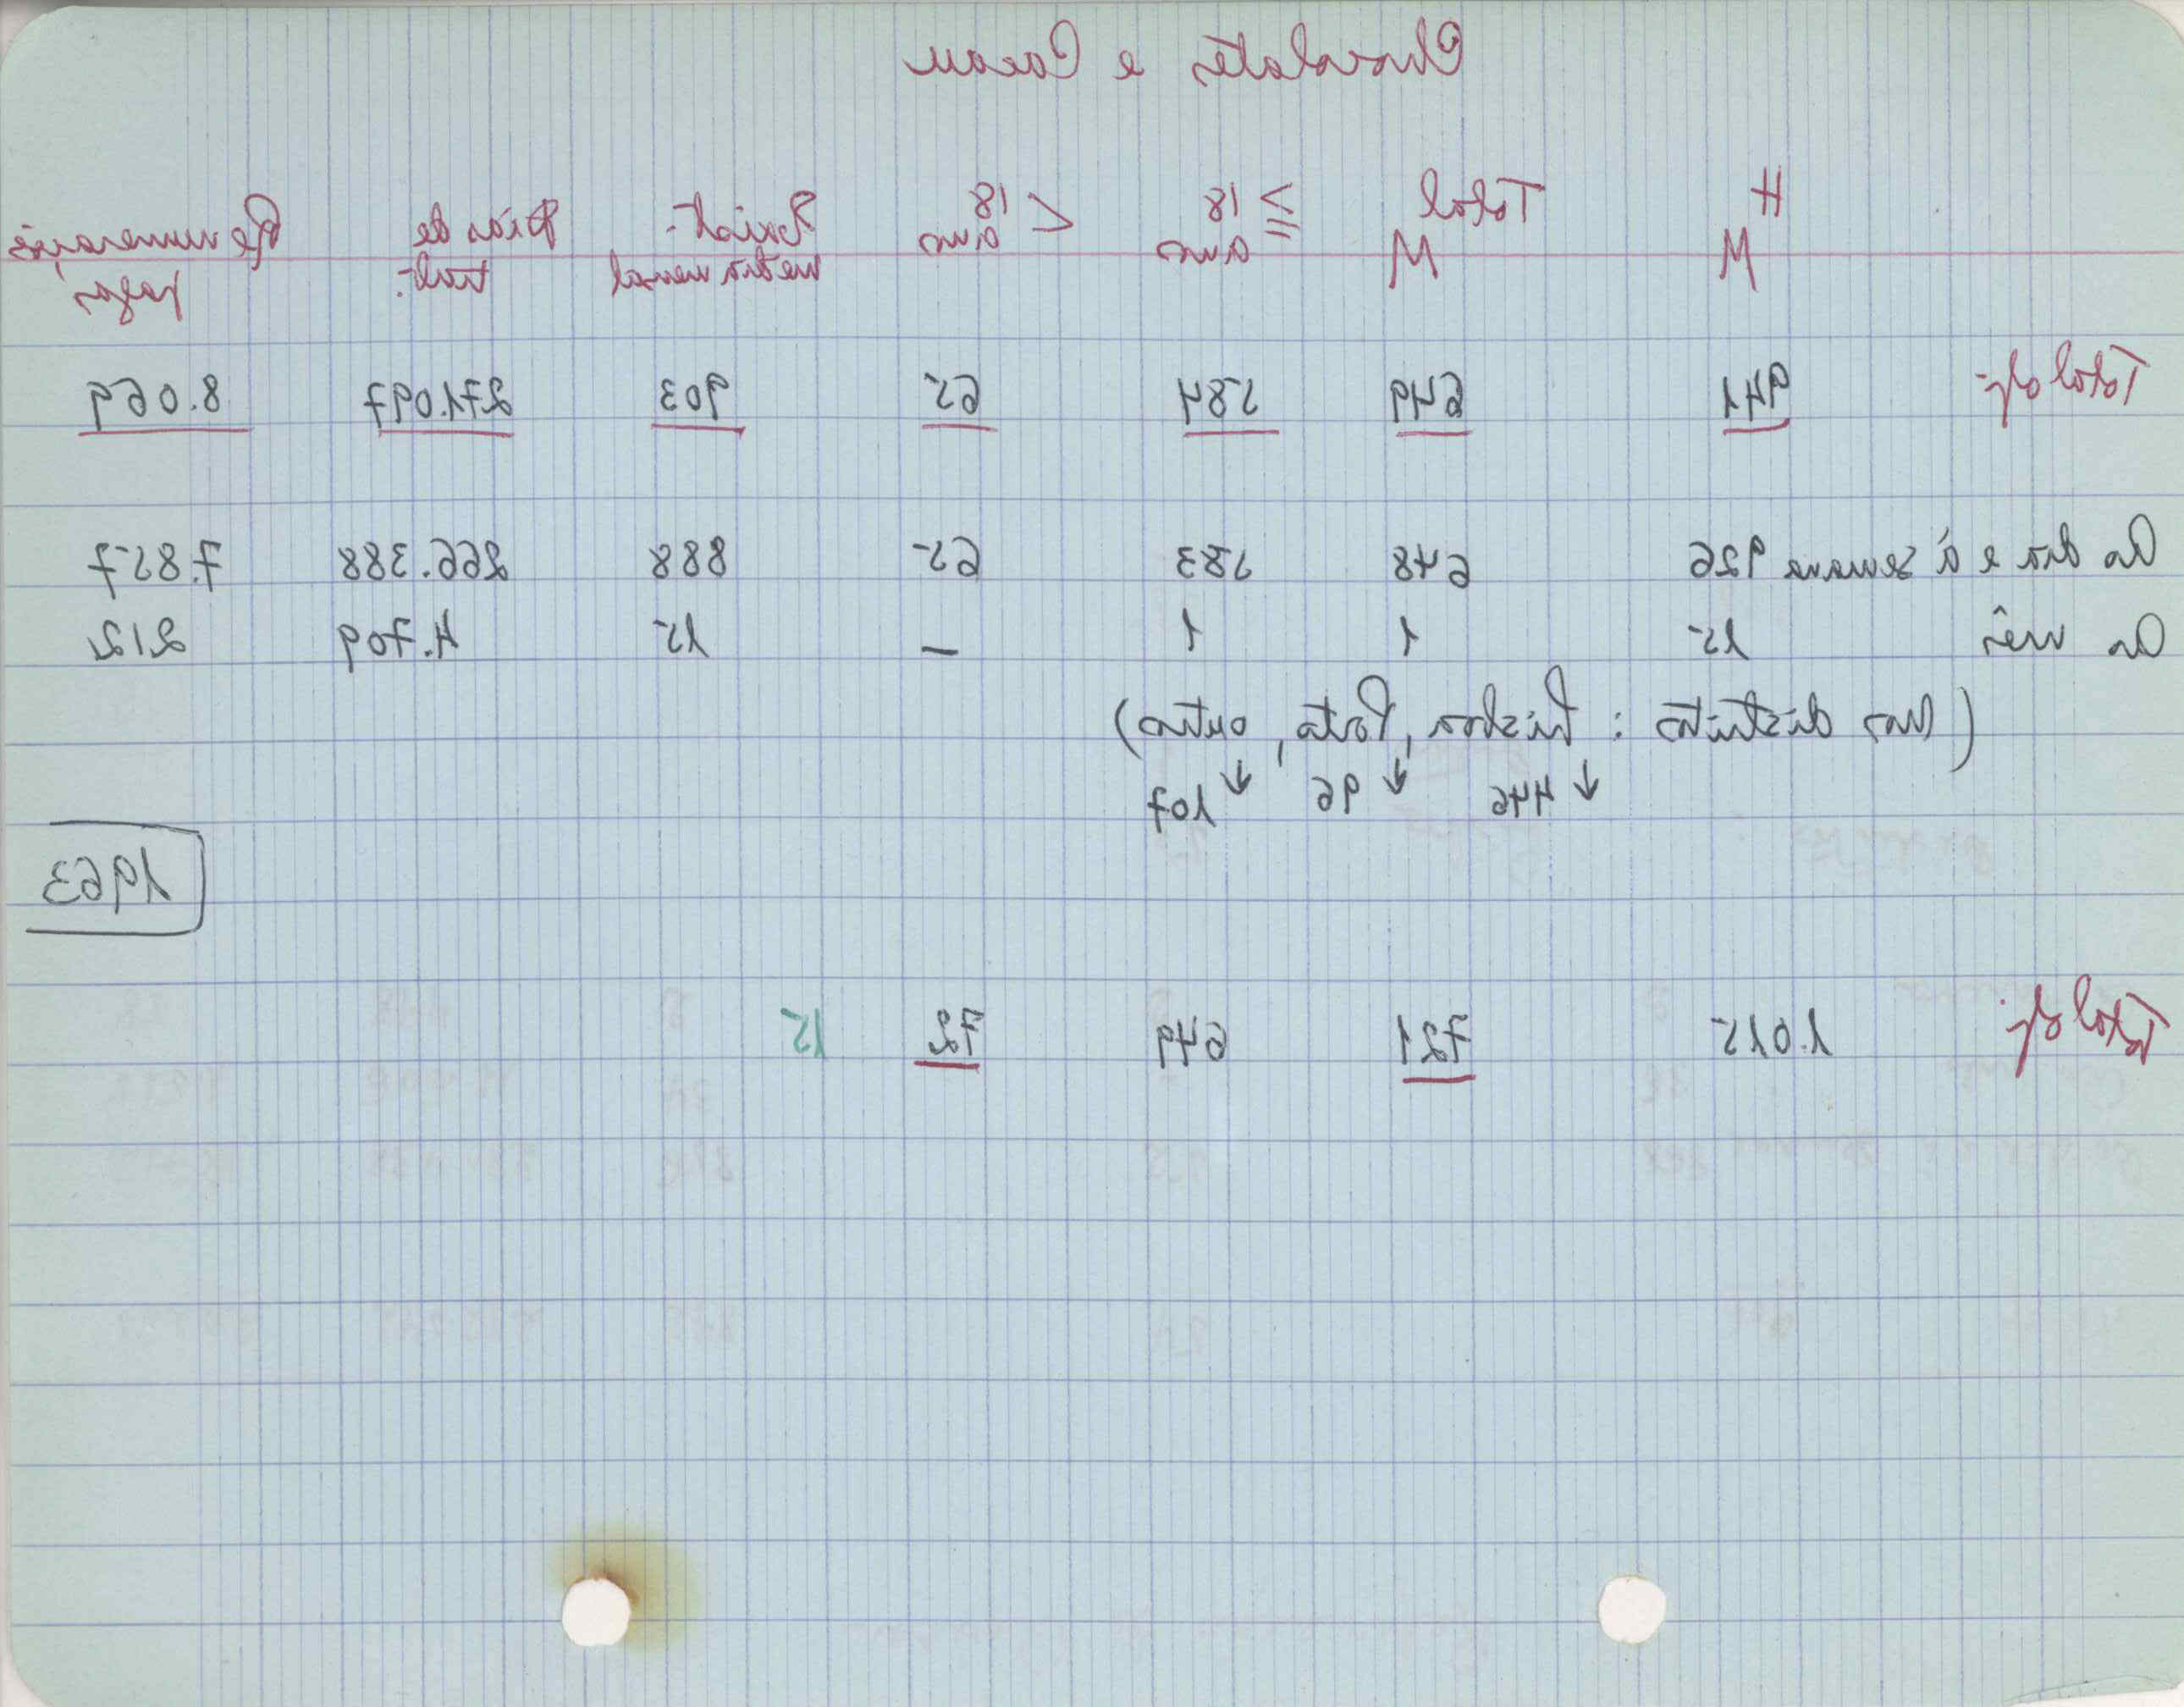 Chocolates e Cacau
H M Total M ≧ 18 anos < 18 anos Exist. média mensal Dias de trab. Remunerações pagas
Total g/: 941 649 584 65 903 271.097 8.069
Ao dia e à semana 926 648 583 65 888 266.388 7.857
Ao mês 15 1 1 — 15 4.709 212
(Nos distritos: Lisboa, Porto, outros)
↓ 446 ↓ 96 ↓ 107
1963
Total g/: 1.015 721 649 72 15